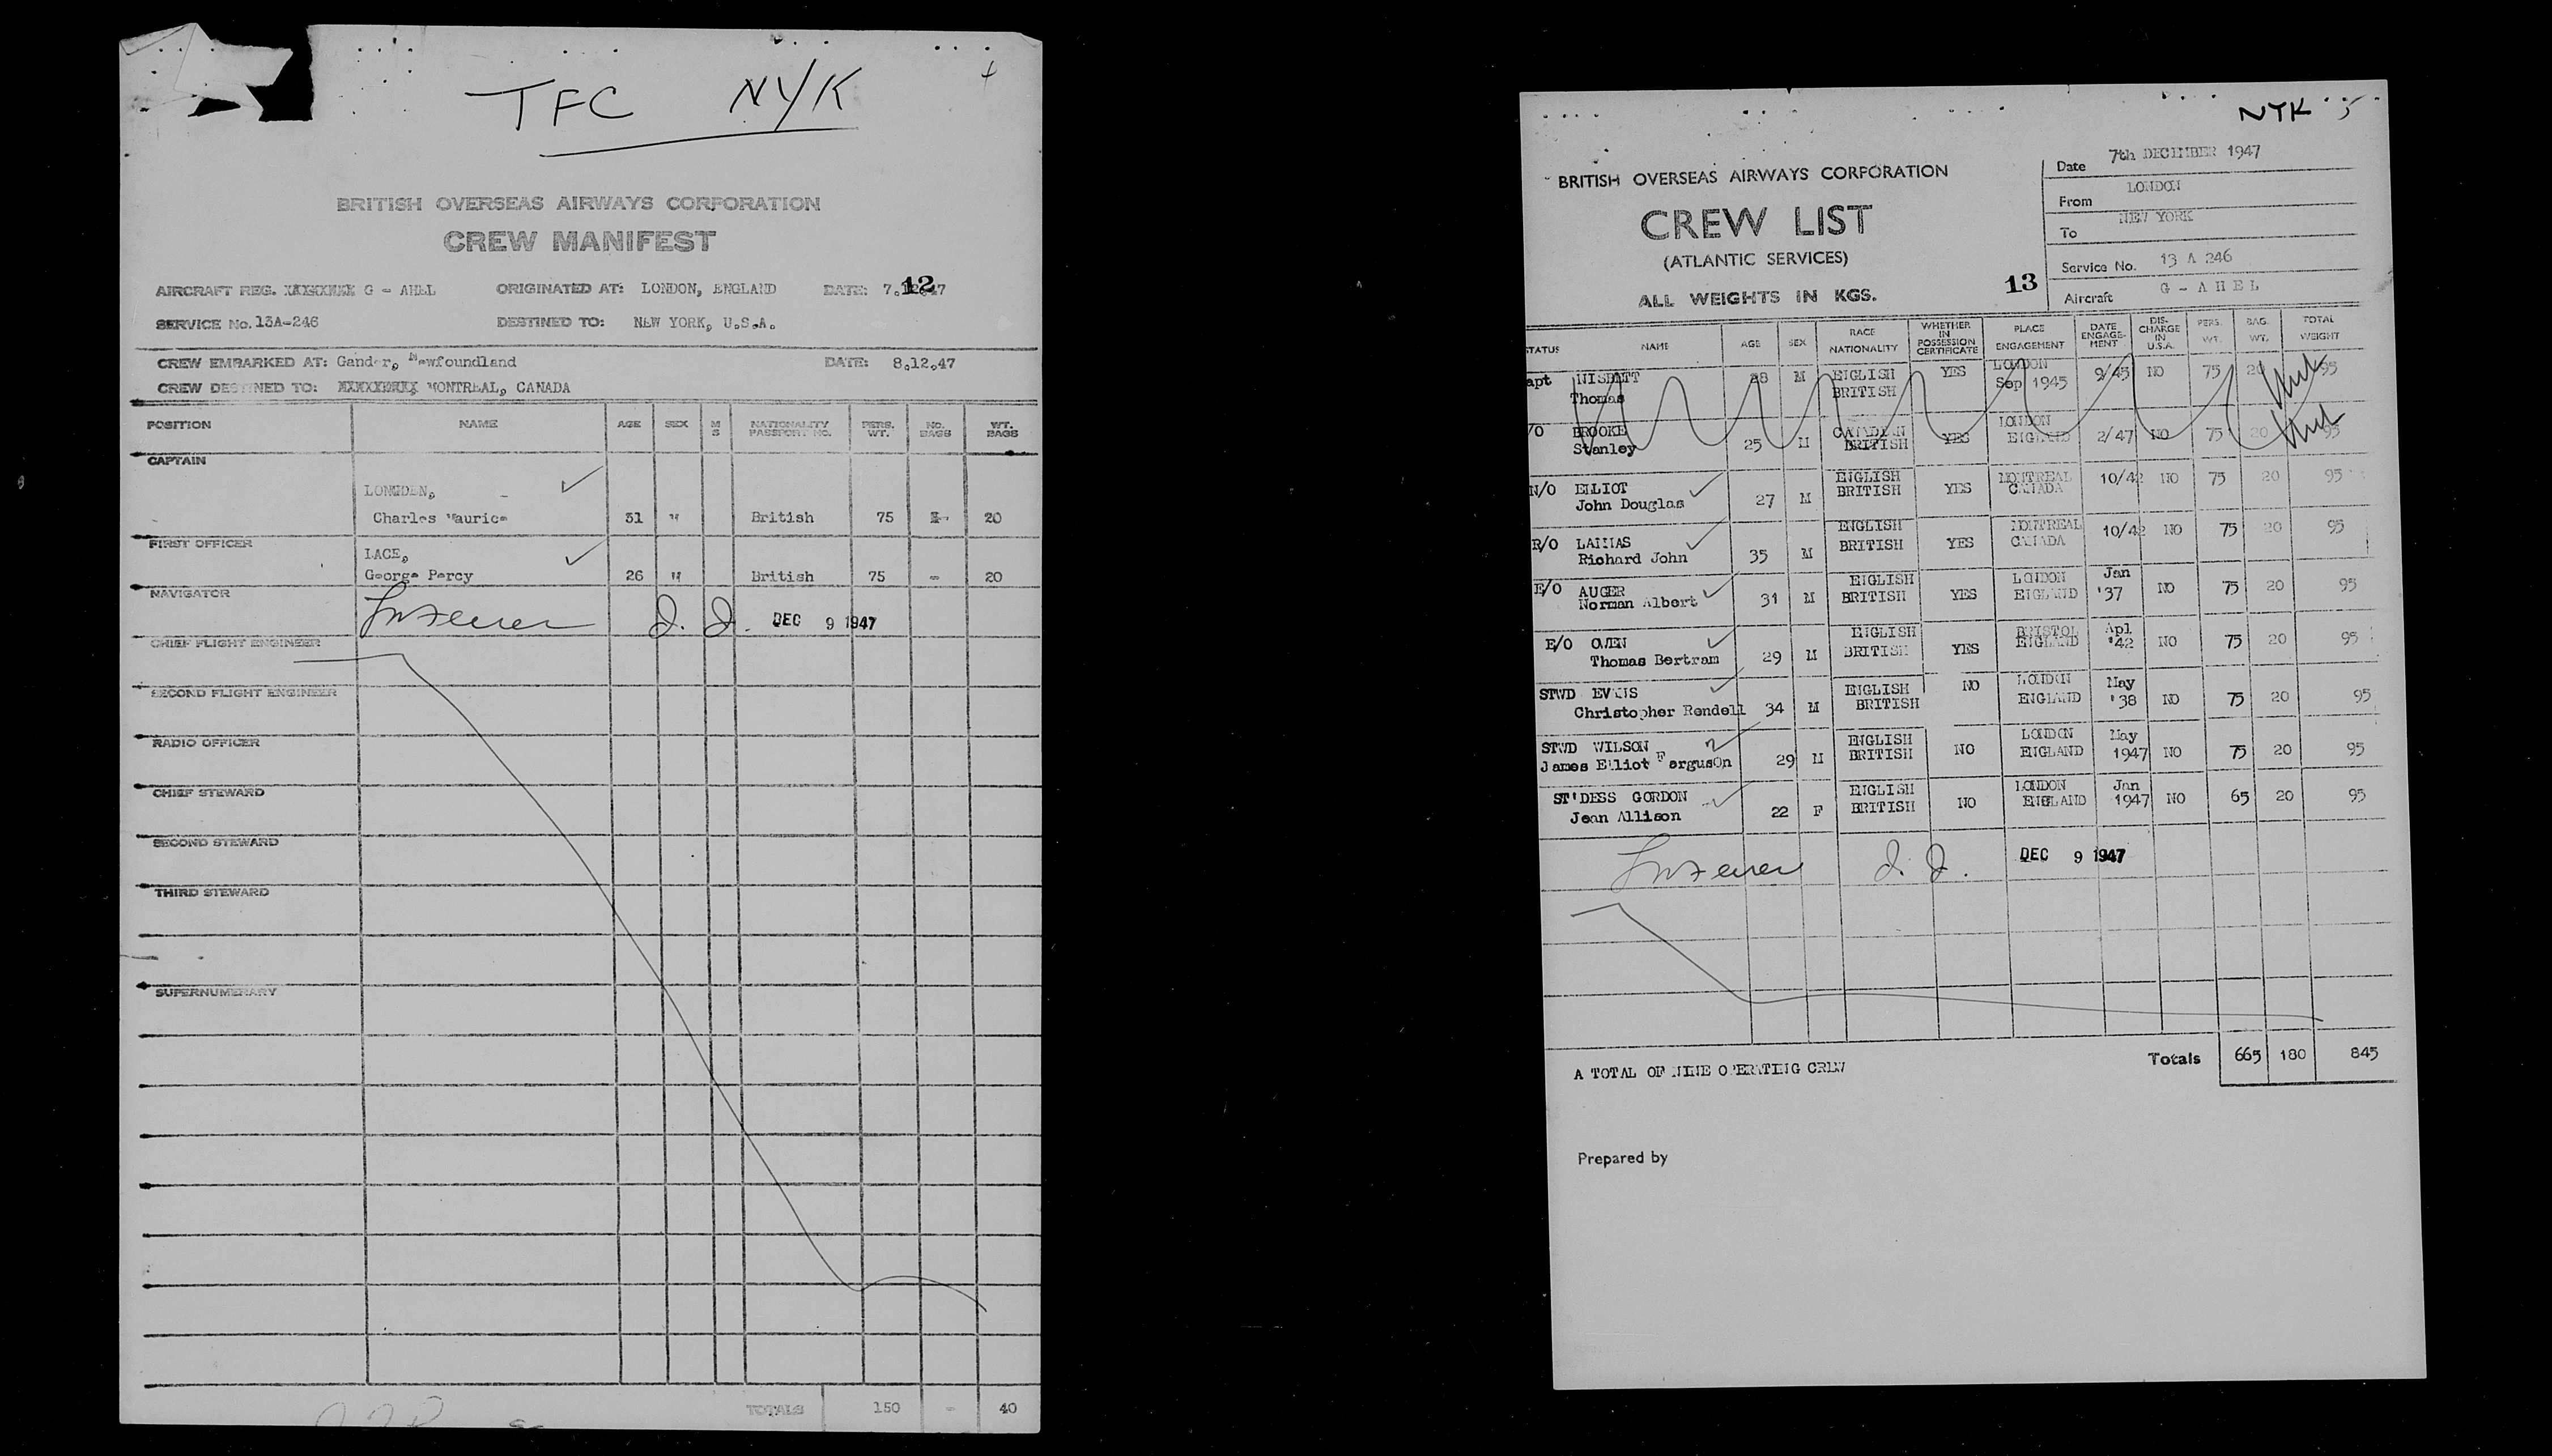 TFC NYK
BRITISH OVERSEAS AIRWAYS CORPORATION
CREW MANIFEST
AIRCRAFT REG. XXXXXXXX G - AHEL ORIGINATED AT: LONDON, ENGLAND DATE: 7.12.47
12
SERVICE No. 13A-246 DESTINED TO: NEW YORK, U.S.A.
CREW EMBARKED AT: Gander, Newfoundland DATE: 8.12.47
CREW DESTINED TO: MONTREAL, CANADA
POSITION NAME AGE SEX M S NATIONALITY PASSPORT NO. PERS. WT. NO. BAGS WT. BAGS
CAPTAIN
LONGDEN,
Charles Maurice 31 " British 75 - 20
FIRST OFFICER
LACE,
George Percy 26 " British 75 - 20
NAVIGATOR
DEC 9 1947
CHIEF FLIGHT ENGINEER
SECOND FLIGHT ENGINEER
RADIO OFFICER
CHIEF STEWARD
SECOND STEWARD
THIRD STEWARD
SUPERNUMERARY
TOTALS 150 - 40
NYK 5
BRITISH OVERSEAS AIRWAYS CORPORATION
CREW LIST
(ATLANTIC SERVICES)
ALL WEIGHTS IN KGS.
13
Date 7th DECEMBER 1947
From LONDON
To NEW YORK
Service No. 13 A 246
Aircraft G - A H E L
STATUS NAME AGE SEX RACE NATIONALITY WHETHER IN POSSESSION CERTIFICATE PLACE ENGAGEMENT DATE ENGAGE-MENT DIS-CHARGE IN U.S.A. PERS. WT. BAG. WT. TOTAL WEIGHT
apt NISBETT Thomas 28 M ENGLISH BRITISH YES LONDON Sep 1945 9/45 NO 75 20 95
/O BROOKE Stanley 25 M CANADIAN BRITISH YES LONDON ENGLAND 2/47 NO 75 20 95
N/O ELLIOT John Douglas 27 M ENGLISH BRITISH YES MONTREAL CANADA 10/42 NO 75 20 95
R/O LAMMAS Richard John 35 M ENGLISH BRITISH YES MONTREAL CANADA 10/42 NO 75 20 95
E/O AUGER Norman Albert 31 M ENGLISH BRITISH YES LONDON ENGLAND Jan '37 NO 75 20 95
E/O OWEN Thomas Bertram 29 M ENGLISH BRITISH YES BRISTOL ENGLAND Apl '42 NO 75 20 95
STWD EVANS Christopher Rendell 34 M ENGLISH BRITISH NO LONDON ENGLAND May '38 NO 75 20 95
STWD WILSON James Elliot Ferguson 29 M ENGLISH BRITISH NO LONDON ENGLAND May 1947 NO 75 20 95
ST'DESS GORDON Jean Allison 22 F ENGLISH BRITISH NO LONDON ENGLAND Jan 1947 NO 65 20 95
DEC 9 1947
Totals 665 180 845
A TOTAL OF NINE OPERATING CREW
Prepared by